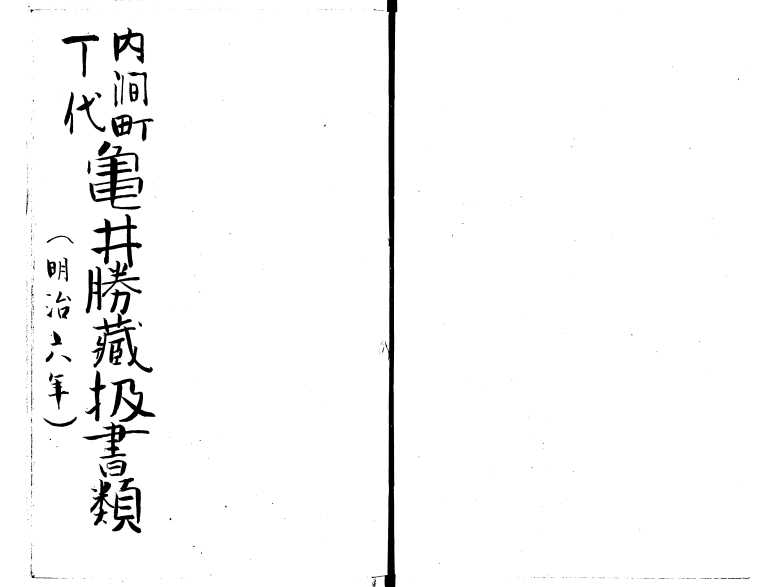 内澗町
丁代
亀井勝藏扱書類
（明治六年）